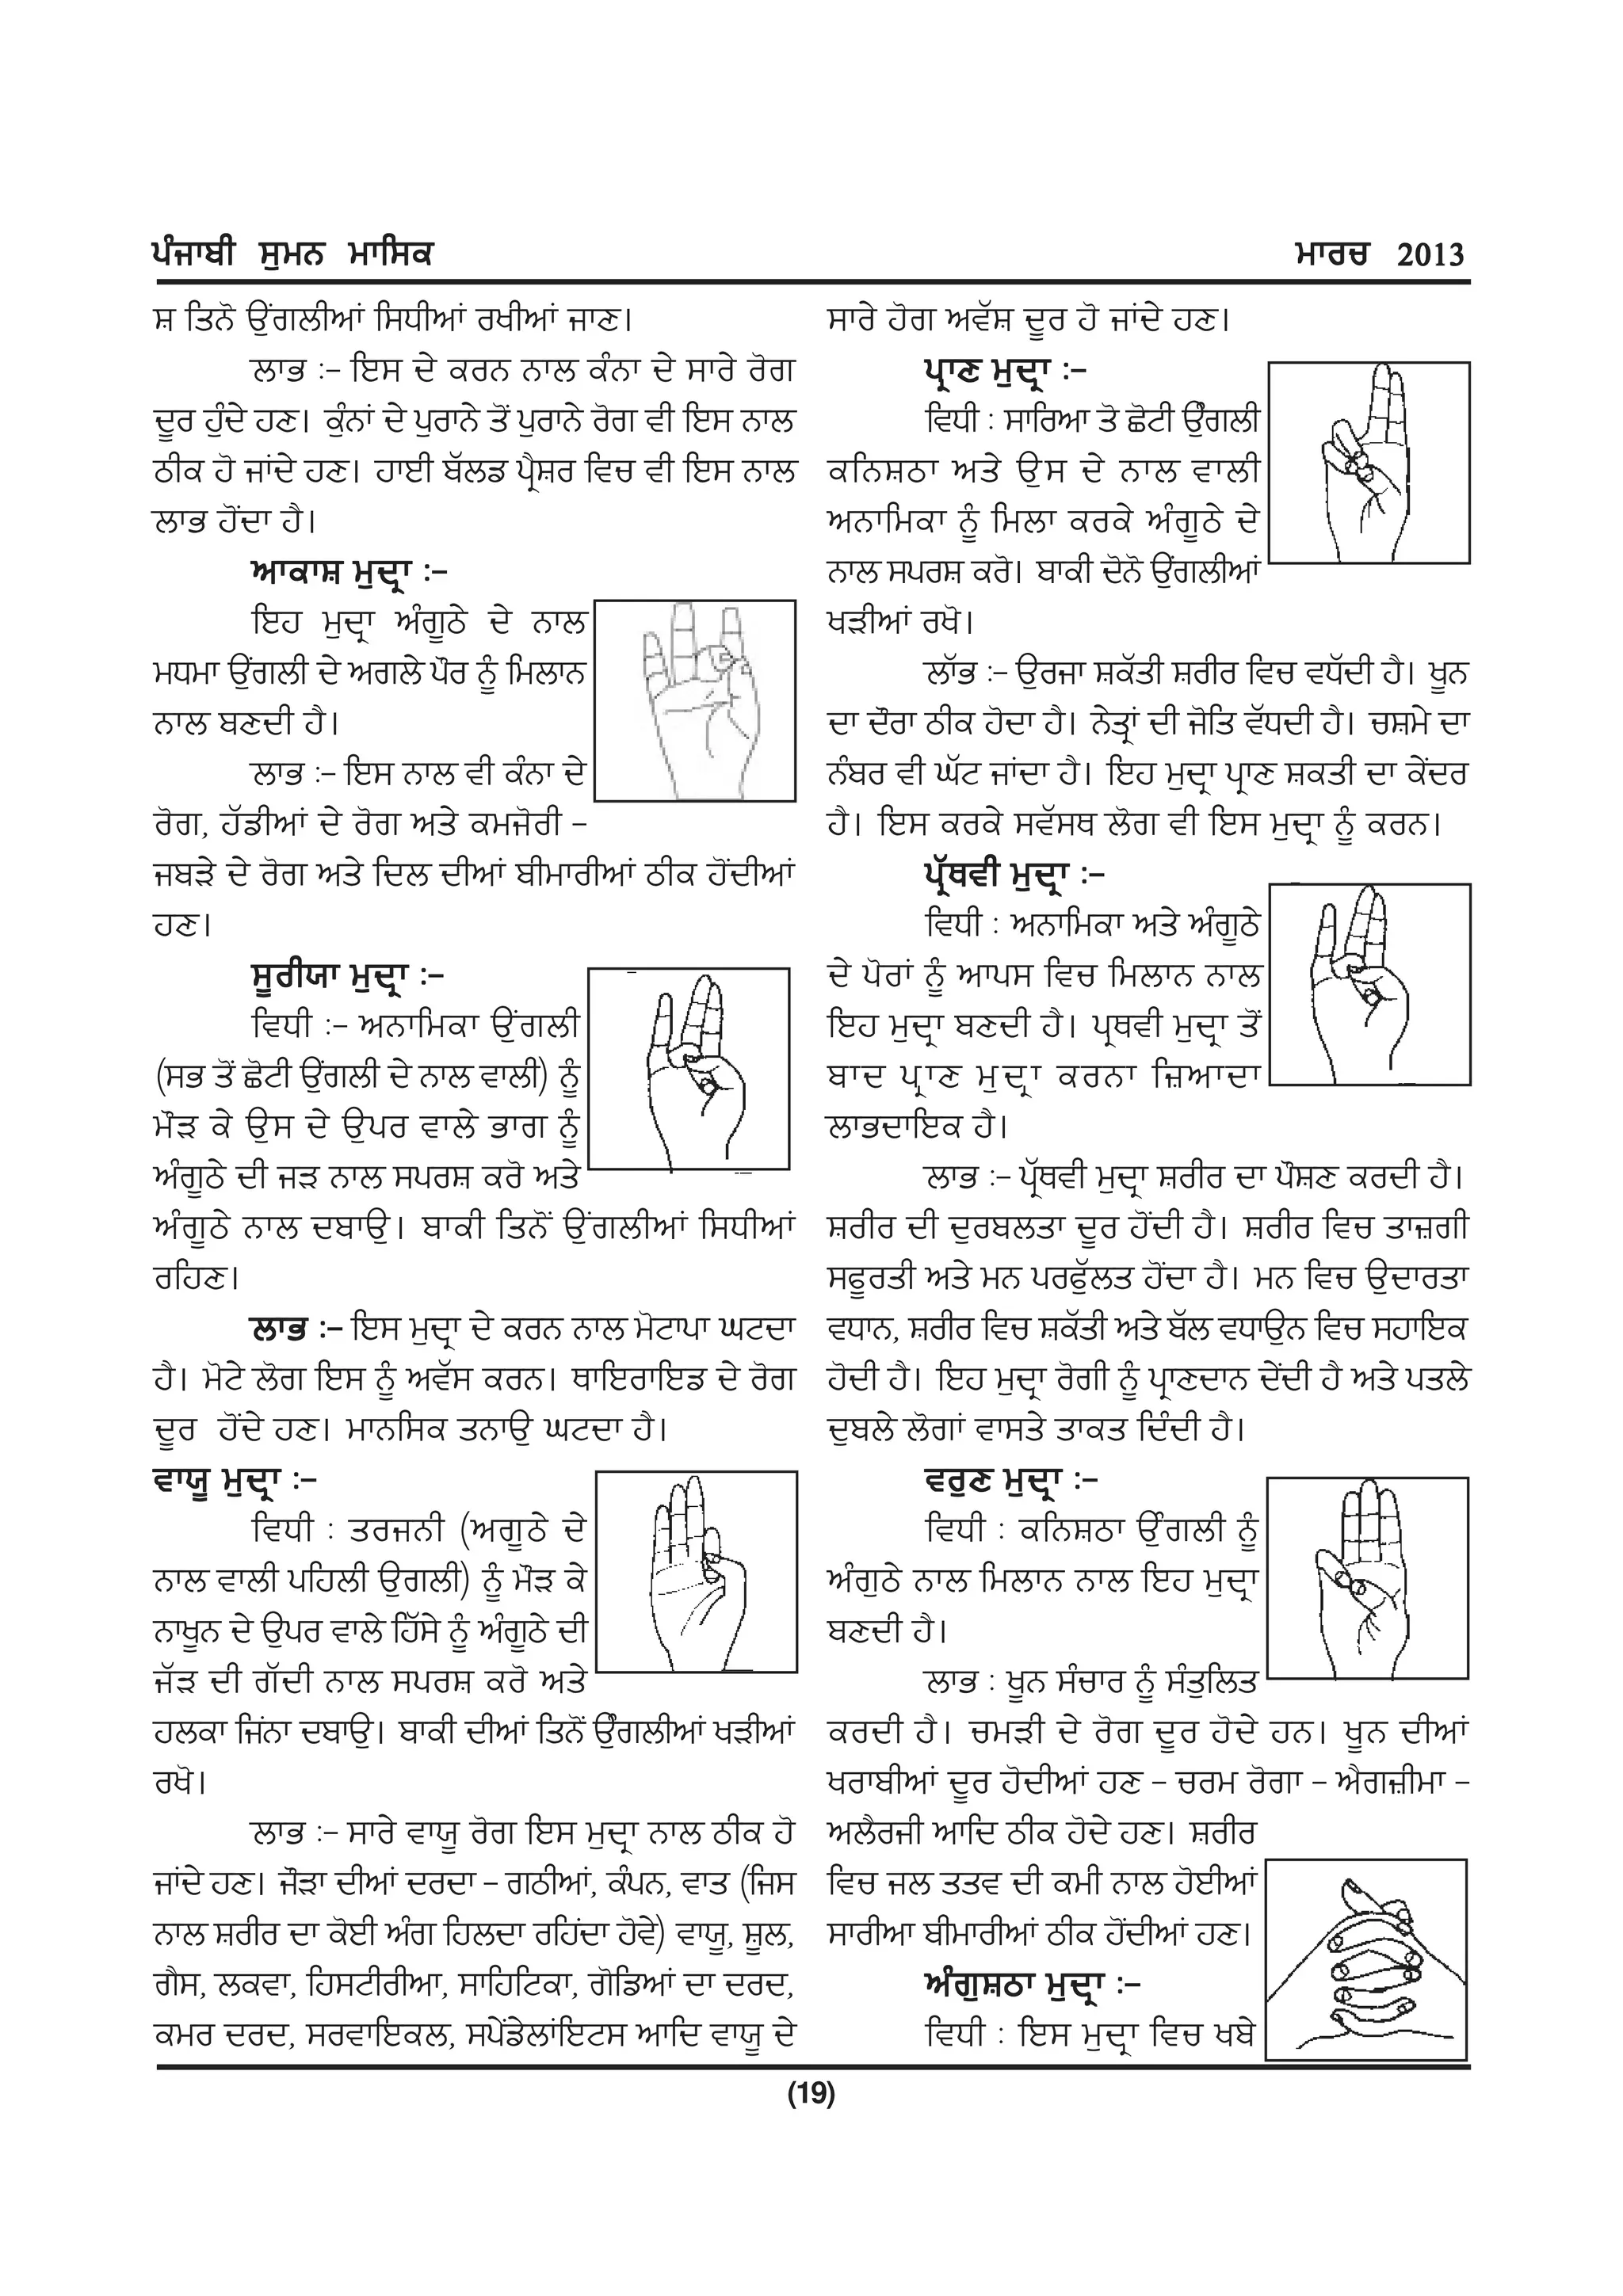 ਪੰਜਾਬੀ ਸੁਮਨ ਮਾਸਿਕ
ਮਾਰਚ 2013
ਸ਼ ਤਿਨੋ ਉਂਗਲੀਆਂ ਸਿਧੀਆਂ ਰਖੀਆਂ ਜਾਣ।
ਲਾਭ :- ਇਸ ਦੇ ਕਰਨ ਨਾਲ ਕੰਨਾ ਦੇ ਸਾਰੇ ਰੋਗ
ਦੂਰ ਹੁੰਦੇ ਹਣ। ਕੁੰਨਾਂ ਦੇ ਪੁਰਾਨੇ ਤੋਂ ਪੁਰਾਨੇ ਰੋਗ ਵੀ ਇਸ ਨਾਲ
ਠੀਕ ਹੋ ਜਾਂਦੇ ਹਣ। ਹਾਈ ਬੱਲਡ ਪ੍ਰੈਸ਼ਰ ਵਿਚ ਵੀ ਇਸ ਨਾਲ
ਲਾਭ ਹੋਂਦਾ ਹੈ।
ਆਕਾਸ਼ ਮੁਦ੍ਰਾ :-
ਇਹ ਮੁਦ੍ਰਾ ਅੰਗੂਠੇ ਦੇ ਨਾਲ
ਮਧਮਾ ਉਂਗਲੀ ਦੇ ਅਗਲੇ ਪੌਰ ਨੂੰ ਮਿਲਾਨ
ਨਾਲ ਬਣਦੀ ਹੈ।
ਲਾਭ :- ਇਸ ਨਾਲ ਵੀ ਕੰਨਾ ਦੇ
ਰੋਗ, ਹੱਡੀਆਂ ਦੇ ਰੋਗ ਅਤੇ ਕਮਜੋਰੀ -
ਜਬੜੇ ਦੇ ਰੋਗ ਅਤੇ ਦਿਲ ਦੀਆਂ ਬੀਮਾਰੀਆਂ ਠੀਕ ਹੋਂਦੀਆਂ
ਹਣ।
ਸੂਰੀਯਾ ਮੁਦ੍ਰਾ :-
ਵਿਧੀ :- ਅਨਾਮਿਕਾ ਉਂਗਲੀ
(ਸਭ ਤੋਂ ਛੋਟੀ ਉਂਗਲੀ ਦੇ ਨਾਲ ਵਾਲੀ) ਨੂੰ
ਮੌੜ ਕੇ ਉਸ ਦੇ ਉਪਰ ਵਾਲੇ ਭਾਗ ਨੂੰ
ਅੰਗੂਠੇ ਦੀ ਜੜ ਨਾਲ ਸਪਰਸ਼ ਕਰੋ ਅਤੇ
ਅੰਗੂਠੇ ਨਾਲ ਦਬਾਉ। ਬਾਕੀ ਤਿਨੋਂ ਉਂਗਲੀਆਂ ਸਿਧੀਆਂ
ਰਹਿਣ।
ਲਾਭ :- ਇਸ ਮੁਦ੍ਰਾ ਦੇ ਕਰਨ ਨਾਲ ਮੋਟਾਪਾ ਘਟਦਾ
ਹੈ। ਮੋਟੇ ਲੋਗ ਇਸ ਨੂੰ ਅਵੱਸ ਕਰਨ। ਥਾਇਰਾਇਡ ਦੇ ਰੋਗ
ਦੂਰ ਹੋਂਦੇ ਹਣ। ਮਾਨਸਿਕ ਤਨਾਉ ਘਟਦਾ ਹੈ।
ਵਾਯੂ ਮੁਦ੍ਰਾ :-
ਵਿਧੀ : ਤਰਜਨੀ (ਅਗੂਠੇ ਦੇ
ਨਾਲ ਵਾਲੀ ਪਹਿਲੀ ਉਗਲੀ) ਨੂੰ ਮੌੜ ਕੇ
ਨਾਖੂਨ ਦੇ ਉਪਰ ਵਾਲੇ ਹਿੱਸੇ ਨੂੰ ਅੰਗੂਠੇ ਦੀ
ਜੱੜ ਦੀ ਗੱਦੀ ਨਾਲ ਸਪਰਸ਼ ਕਰੋ ਅਤੇ
ਹਲਕਾ ਜਿੰਨਾ ਦਬਾਉ। ਬਾਕੀ ਦੀਆਂ ਤਿਨੋਂ ਉਂਗਲੀਆਂ ਖੜੀਆਂ
ਰਖੋ।
ਲਾਭ :- ਸਾਰੇ ਵਾਯੂ ਰੋਗ ਇਸ ਮੁਦ੍ਰਾ ਨਾਲ ਠੀਕ ਹੋ
ਜਾਂਦੇ ਹਣ। ਜੌੜਾ ਦੀਆਂ ਦਰਦਾ - ਗਠੀਆਂ, ਕੰਪਨ, ਵਾਤ (ਜਿਸ
ਨਾਲ ਸ਼ਰੀਰ ਦਾ ਕੋਈ ਅੰਗ ਹਿਲਦਾ ਰਹਿੰਦਾ ਹੋਵੇ) ਵਾਯੂ, ਸ਼ੂਲ,
ਗੈਸ, ਲਕਵਾ, ਹਿਸਟੀਰੀਆ, ਸਾਹਿਟਿਕਾ, ਗੋਡਿਆਂ ਦਾ ਦਰਦ,
ਕਮਰ ਦਰਦ, ਸਰਵਾਇਕਲ, ਸਪੇਂਡੇਲਾਂਇਟਸ ਆਦਿ ਵਾਯੂ ਦੇ
ਸਾਰੇ ਹੋਗ ਅਵੱਸ਼ ਦੂਰ ਹੋ ਜਾਂਦੇ ਹਣ।
ਪ੍ਰਾਣ ਮੁਦ੍ਰਾ :-
ਵਿਧੀ : ਸਾਰਿਆ ਤੋ ਛੋਟੀ ਉਂਗਲੀ
ਕਨਿਸ਼ਠਾ ਅਤੇ ਉਸ ਦੇ ਨਾਲ ਵਾਲੀ
ਅਨਾਮਿਕਾ ਨੂੰ ਮਿਲਾ ਕਰਕੇ ਅੰਗੂਠੇ ਦੇ
ਨਾਲ ਸਪਰਸ਼ ਕਰੋ। ਬਾਕੀ ਦੋਨੋ ਉਂਗਲੀਆਂ
ਖੜੀਆਂ ਰਖੋ।
ਲਾੱਭ :- ਉਰਜਾ ਸ਼ਕੱਤੀ ਸ਼ਰੀਰ ਵਿਚ ਵਧੱਦੀ ਹੈ। ਖੂਨ
ਦਾ ਦੌਰਾ ਠੀਕ ਹੋਦਾ ਹੈ। ਨੇਤ੍ਰਾਂ ਦੀ ਜੋਤਿ ਵੱਧਦੀ ਹੈ। ਚਸ਼ਮੇ ਦਾ
ਨੰਬਰ ਵੀ ਘੱਟ ਜਾਂਦਾ ਹੈ। ਇਹ ਮੁਦ੍ਰਾ ਪ੍ਰਾਣ ਸ਼ਕਤੀ ਦਾ ਕੇਂਦਰ
ਹੈ। ਇਸ ਕਰਕੇ ਸਵੱਸਥ ਲੋਗ ਵੀ ਇਸ ਮੁਦ੍ਰਾ ਨੂੰ ਕਰਨ।
ਪ੍ਰੱਥਵੀ ਮੁਦ੍ਰਾ :-
ਵਿਧੀ : ਅਨਾਮਿਕਾ ਅਤੇ ਅੰਗੂਠੇ
ਦੇ ਪੋਰਾਂ ਨੂੰ ਆਪਸ ਵਿਚ ਮਿਲਾਨ ਨਾਲ
ਇਹ ਮੁਦ੍ਰਾ ਬਣਦੀ ਹੈ। ਪ੍ਰਥਵੀ ਮੁਦ੍ਰਾ ਤੋਂ
ਬਾਦ ਪ੍ਰਾਣ ਮੁਦ੍ਰਾ ਕਰਨਾ ਜ਼ਿਆਦਾ
ਲਾਭਦਾਇਕ ਹੈ।
ਲਾਭ :- ਪ੍ਰੱਥਵੀ ਮੁਦ੍ਰਾ ਸ਼ਰੀਰ ਦਾ ਪੌਸ਼ਣ ਕਰਦੀ ਹੈ।
ਸ਼ਰੀਰ ਦੀ ਦੁਰਬਲਤਾ ਦੂਰ ਹੋਂਦੀ ਹੈ। ਸ਼ਰੀਰ ਵਿਚ ਤਾਜ਼ਗੀ
ਸਫੂਰਤੀ ਅਤੇ ਮਨ ਪਰਫੁੱਲਤ ਹੋਂਦਾ ਹੈ। ਮਨ ਵਿਚ ਉਦਾਰਤਾ
ਵਧਾਨ, ਸ਼ਰੀਰ ਵਿਚ ਸ਼ਕੱਤੀ ਅਤੇ ਬੱਲ ਵਧਾਉਨ ਵਿਚ ਸਹਾਇਕ
ਹੋਦੀ ਹੈ। ਇਹ ਮੁਦ੍ਰਾ ਰੋਗੀ ਨੂੰ ਪ੍ਰਾਣਦਾਨ ਦੇਂਦੀ ਹੈ ਅਤੇ ਪਤਲੇ
ਦੁਬਲੇ ਲੋਗਾਂ ਵਾਸਤੇ ਤਾਕਤ ਦਿੰਦੀ ਹੈ।
ਵਰੁਣ ਮੁਦ੍ਰਾ :-
ਵਿਧੀ : ਕਨਿਸ਼ਠਾ ਉਂਗਲੀ ਨੂੰ
ਅੰਗੁਠੇ ਨਾਲ ਮਿਲਾਨ ਨਾਲ ਇਹ ਮੁਦ੍ਰਾ
ਬਣਦੀ ਹੈ।
ਲਾਭ : ਖੂਨ ਸੰਚਾਰ ਨੂੰ ਸੰਤੁਲਿਤ
ਕਰਦੀ ਹੈ। ਚਮੜੀ ਦੇ ਰੋਗ ਦੂਰ ਹੋਦੇ ਹਨ। ਖੂਨ ਦੀਆਂ
ਖਰਾਬੀਆਂ ਦੂਰ ਹੋਦੀਆਂ ਹਣ - ਚਰਮ ਰੋਗਾ - ਐਗਜ਼ੀਮਾ -
ਅਲੈਰਜੀ ਆਦਿ ਠੀਕ ਹੋਦੇ ਹਣ। ਸ਼ਰੀਰ
ਵਿਚ ਜਲ ਤਤਵ ਦੀ ਕਮੀ ਨਾਲ ਹੋਈਆਂ
ਸਾਰੀਆ ਬੀਮਾਰੀਆਂ ਠੀਕ ਹੋਂਦੀਆਂ ਹਣ।
ਅੰਗੁਸ਼ਠਾ ਮੁਦ੍ਰਾ :-
ਵਿਧੀ : ਇਸ ਮੁਦ੍ਰਾ ਵਿਚ ਖਬੇ
(19)